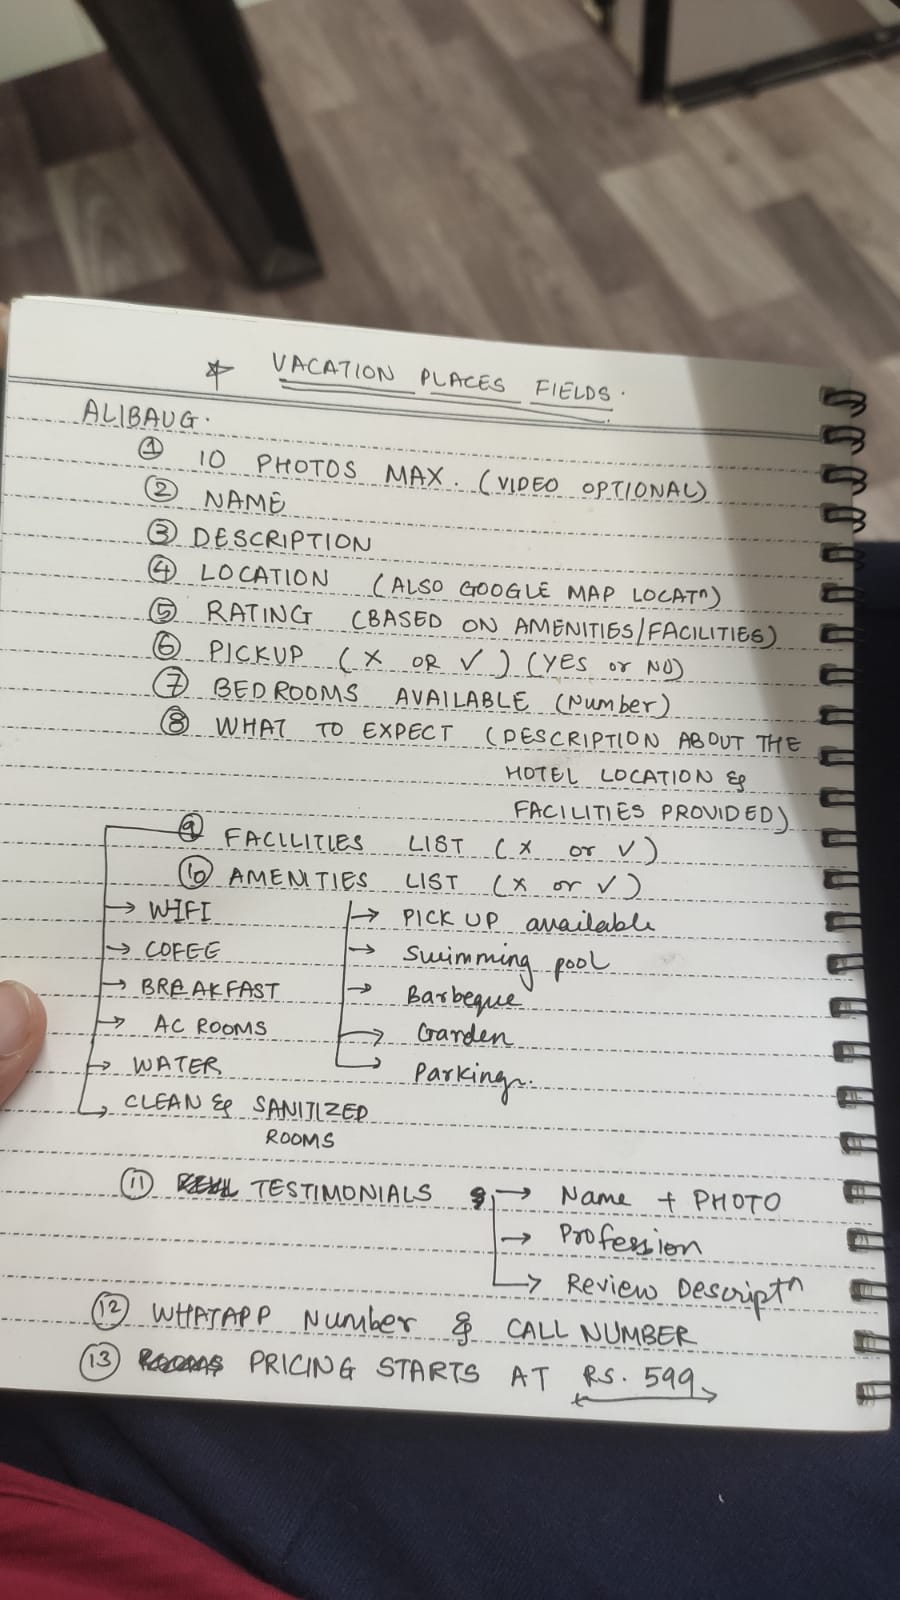 * VACATION PLACES FIELDS.
ALIBAUG.
① 10 PHOTOS MAX. (VIDEO OPTIONAL)
② NAME
③ DESCRIPTION
④ LOCATION (ALSO GOOGLE MAP LOCATⁿ)
⑤ RATING (BASED ON AMENITIES/FACILITIES)
⑥ PICKUP (X OR ✓) (YES or NO)
⑦ BEDROOMS AVAILABLE (Number)
⑧ WHAT TO EXPECT (DESCRIPTION ABOUT THE
HOTEL LOCATION &
FACILITIES PROVIDED)
⑨ FACILITIES LIST (X or ✓)
⑩ AMENITIES LIST (X or ✓)
→ WIFI
→ COFEE
→ BREAKFAST
→ AC ROOMS
→ WATER
→ CLEAN & SANITIZED
ROOMS
→ PICK UP available
→ Swimming pool
→ Barbeque
→ Garden
→ Parking
⑪ TESTIMONIALS → Name + PHOTO
→ Profession
→ Review Descriptⁿ
⑫ WHATAPP Number & CALL NUMBER
⑬ PRICING STARTS AT RS. 599